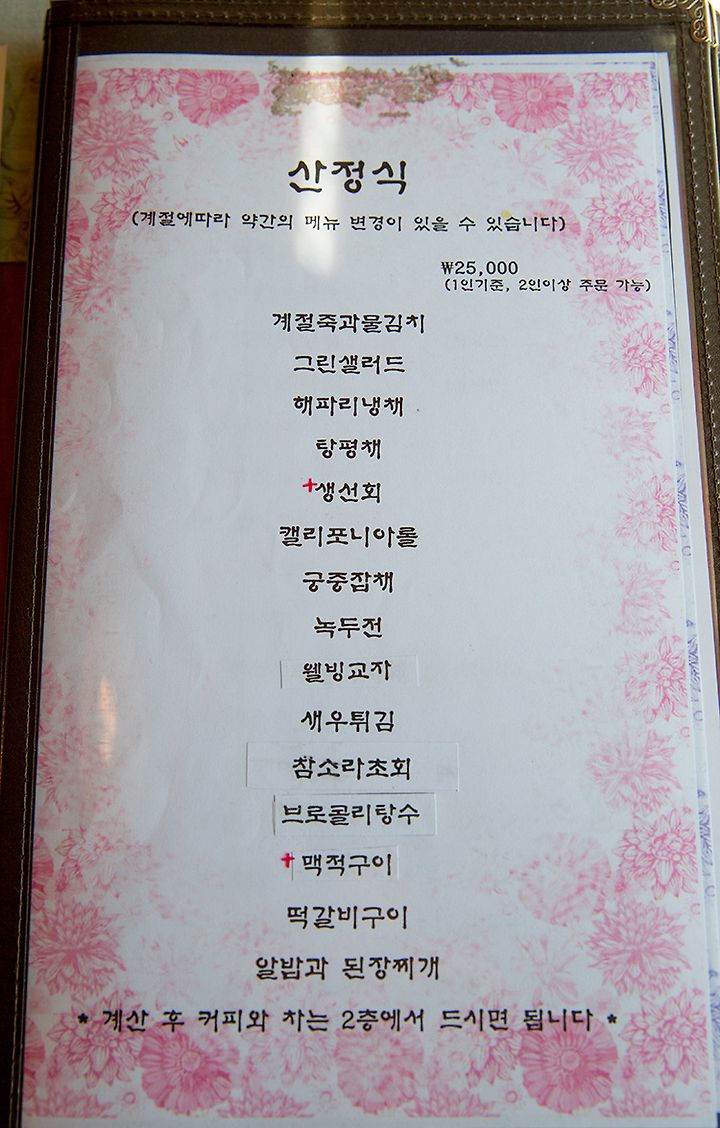 산정식
(계절에따라 약간의 메뉴 변경이 있을 수 있습니다)
₩25,000
(1인기준, 2인이상 주문 가능)
계절죽과물김치
그린샐러드
해파리냉채
탕평채
+생선회
캘리포니아롤
궁중잡채
녹두전
웰빙교자
새우튀김
참소라초회
브로콜리탕수
+맥적구이
떡갈비구이
알밥과 된장찌개
* 계산 후 커피와 차는 2층에서 드시면 됩니다 *